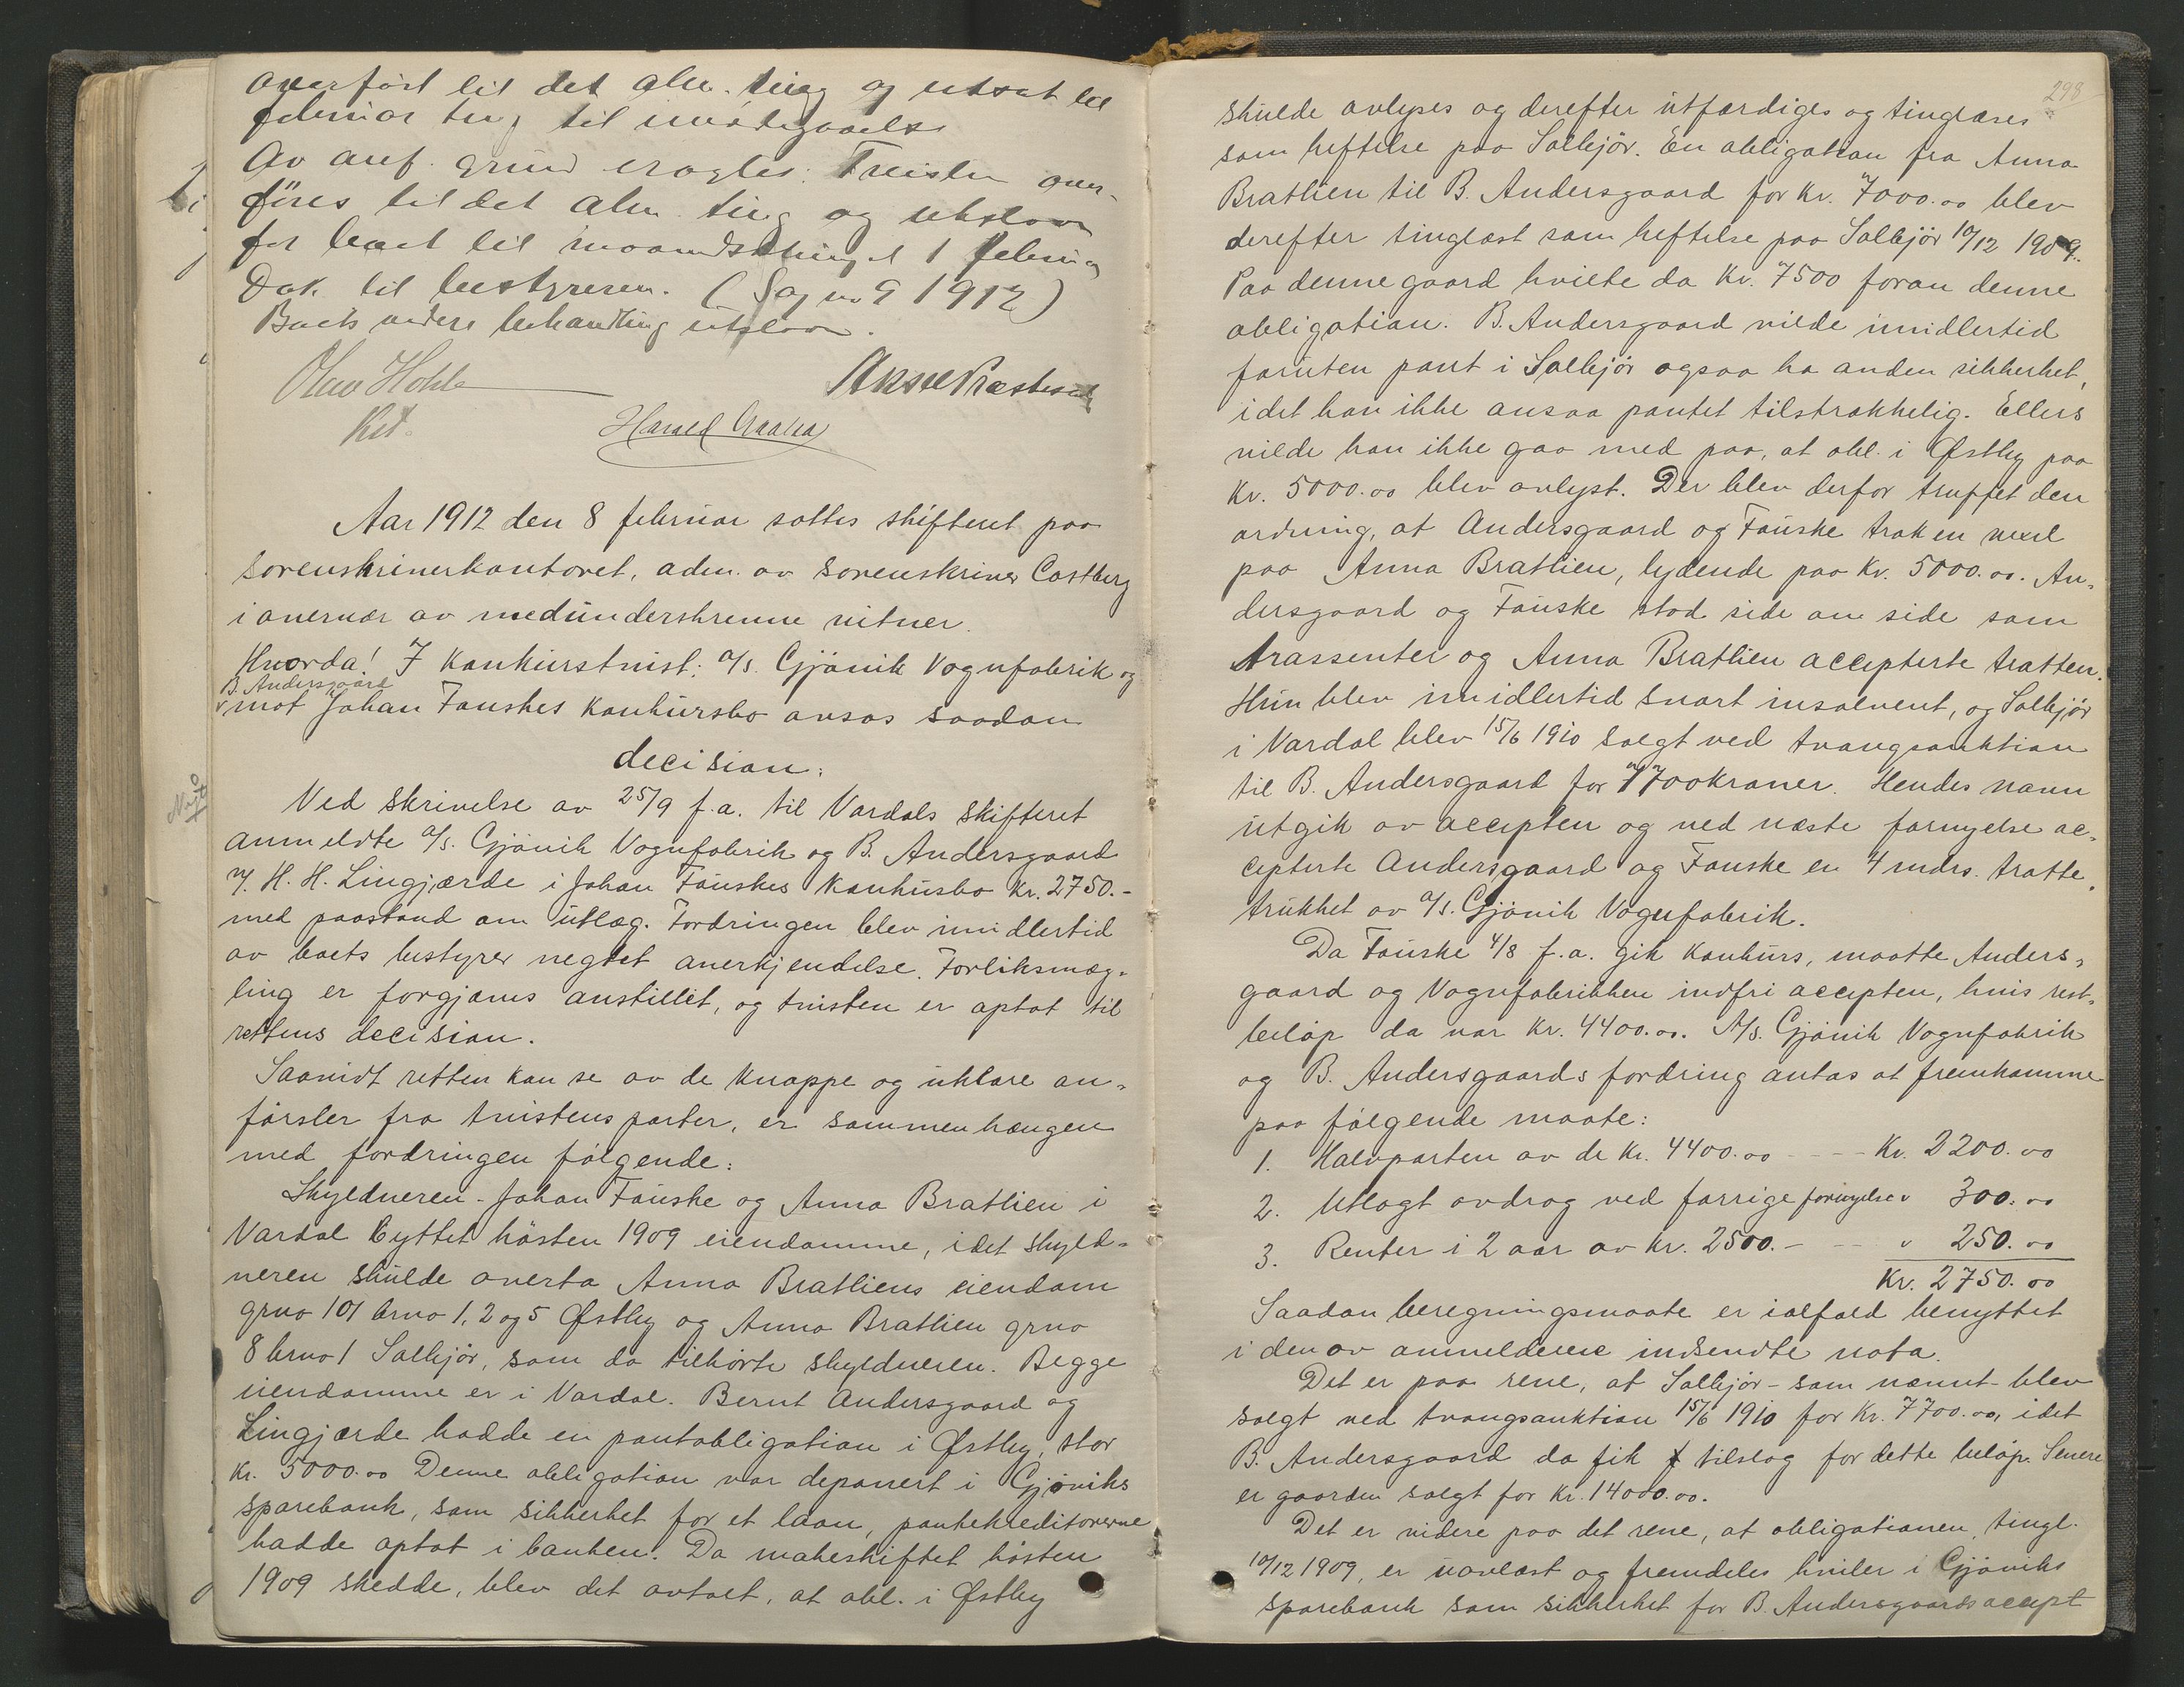 overført til det alm. ting og utsat til
februar ting til imøtegaaelse
Av anf. grund eragtes: Tvisten over-
føres til det alm. ting og utstaar
for boet til maanedstinget 1 februar
Dok. til bestyreren. (Sag no 9 1912)
Boets videre behandling utstaar.
Olav Hohle
Harald
Aar 1912 den 8 februar sattes skifteret paa
sorenskriverkontoret, adm. av sorenskriver Castberg
i overvær av medunderskrevne vitner.
Hvorda! I konkurstvist: A/s. Gjøvik Vognfabrik og
B. Andersgaard
mot Johan Fauskes konkursbo avsas saadan
decision:
Nojt
Ved skrivelse av 25/9 f.a. til Vardals skifteret
anmeldte A/s. Gjøvik Vognfabrik og B. Andersgaard
v/ H. H. Lingjærde i Johan Fauskes konkursbo kr. 2750.-
med paastand om utlæg. Fordringen blev imidlertid
av boets bestyrer negtet anerkjendelse. Forliksmæg-
ling er forgjæves anstillet, og tvisten er optat til
rettens decision.
Saavidt retten kan se av de knappe og uklare an-
førsler fra tvistens parter, er sammenhængen
med fordringen følgende:
Skyldneren - Johan Fauske og Anna Bratlien i
Vardal byttet høsten 1909 eiendomme, idet skyld-
neren skulde overta Anna Bratliens eiendom
grno 101 brno 1, 2 og 5 Østby og Anna Bratlien grno
8 brno 1 Solbjør, som da tilhørte skyldneren. Begge
eiendomme er i Vardal. Bernt Andersgaard og
Lingjærde hadde en pantobligation i Østby, stor
kr. 5000.00 Denne obligation var deponert i Gjøviks
sparebank, som sikkerhet for et laan, pantekreditorerne
hadde optat i banken. Da makeskiftet høsten
1909 skedde, blev det avtalt, at obl. i Østby
298
skulde avlyses og derefter utfærdiges og tinglæses
som heftelse paa Solbjør. En obligation fra Anna
Bratlien til B. Andersgaard for kr. 7000.00 blev
derefter tinglæst som heftelse paa Solbjør 10/12 1909.
Paa denne gaard hvilte da kr. 7500 foran denne
obligation. B. Andersgaard vilde imidlertid
foruten pant i Solbjør ogsaa ha anden sikkerhet,
idet han ikke ansaa pantet tilstrækkelig. Ellers
vilde han ikke gaa med paa, at obl. i Østby paa
kr. 5000.00 blev avlyst. Der blev derfor truffet den
ordning, at Andersgaard og Fauske trak en vexel
paa Anna Bratlien, lydende paa kr. 5000.00. An-
dersgaard og Fauske stod side om side som
trassenter og Anna Bratlien accepterte tratten.
Hun blev imidlertid snart insolvent, og Solbjør
i Vardal blev 15/6 1910 solgt ved tvangsauktion
til B. Andersgaard for 7700 kroner. Hendes navn
utgik av accepten og ved næste fornyelse ac-
cepterte Andersgaard og Fauske en 4 mdrs. tratte,
trukket av A/s. Gjøvik Vognfabrik.
Da Fauske 4/8 f.a. gik konkurs, maatte Anders-
gaard og Vognfabrikken indfri accepten, hvis rest-
beløp da var kr. 4400.00. A/s. Gjøvik Vognfabrik
og B. Andersgaards fordring antas at fremkomme
paa følgende maate:
1. Halvparten av de kr. 4400.00 - - - - kr. 2200.00
2. Utlagt avdrag ved forrige fornyelse " 300.00
3. Renter i 2 aar av kr. 2500.- - - " 250.00
Kr. 2750.00
Saadan beregningsmaate er ialfald benyttet
i den av anmelderne indsendte nota.
Det er paa rene, at Solbjør - som nævnt - blev
solgt ved tvangsauktion 15/6 1910 for kr. 7700.00, idet
B. Andersgaard da fik tilslag for dette beløp. Senere
er gaarden solgt for kr. 14000.00.
Det er videre paa det rene, at obligationen, tingl.
10/12 1909, er uavlæst og fremdeles hviler i Gjøviks
sparebank som sikkerhet for B. Andersgaards accept